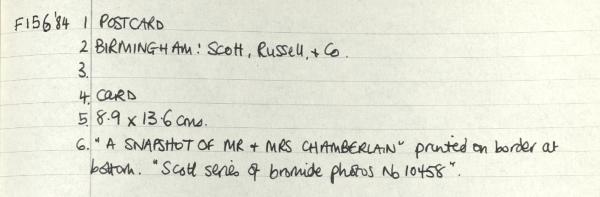 F156'84 1 POSTCARD
2 BIRMINGHAM: Scott, Russell, + Co.
3.
4. CARD
5. 8.9 x 13.6 cms.
6. "A SNAPSHOT OF MR + MRS CHAMBERLAIN" printed on border at
bottom. "Scott series of bromide photos No 10458".